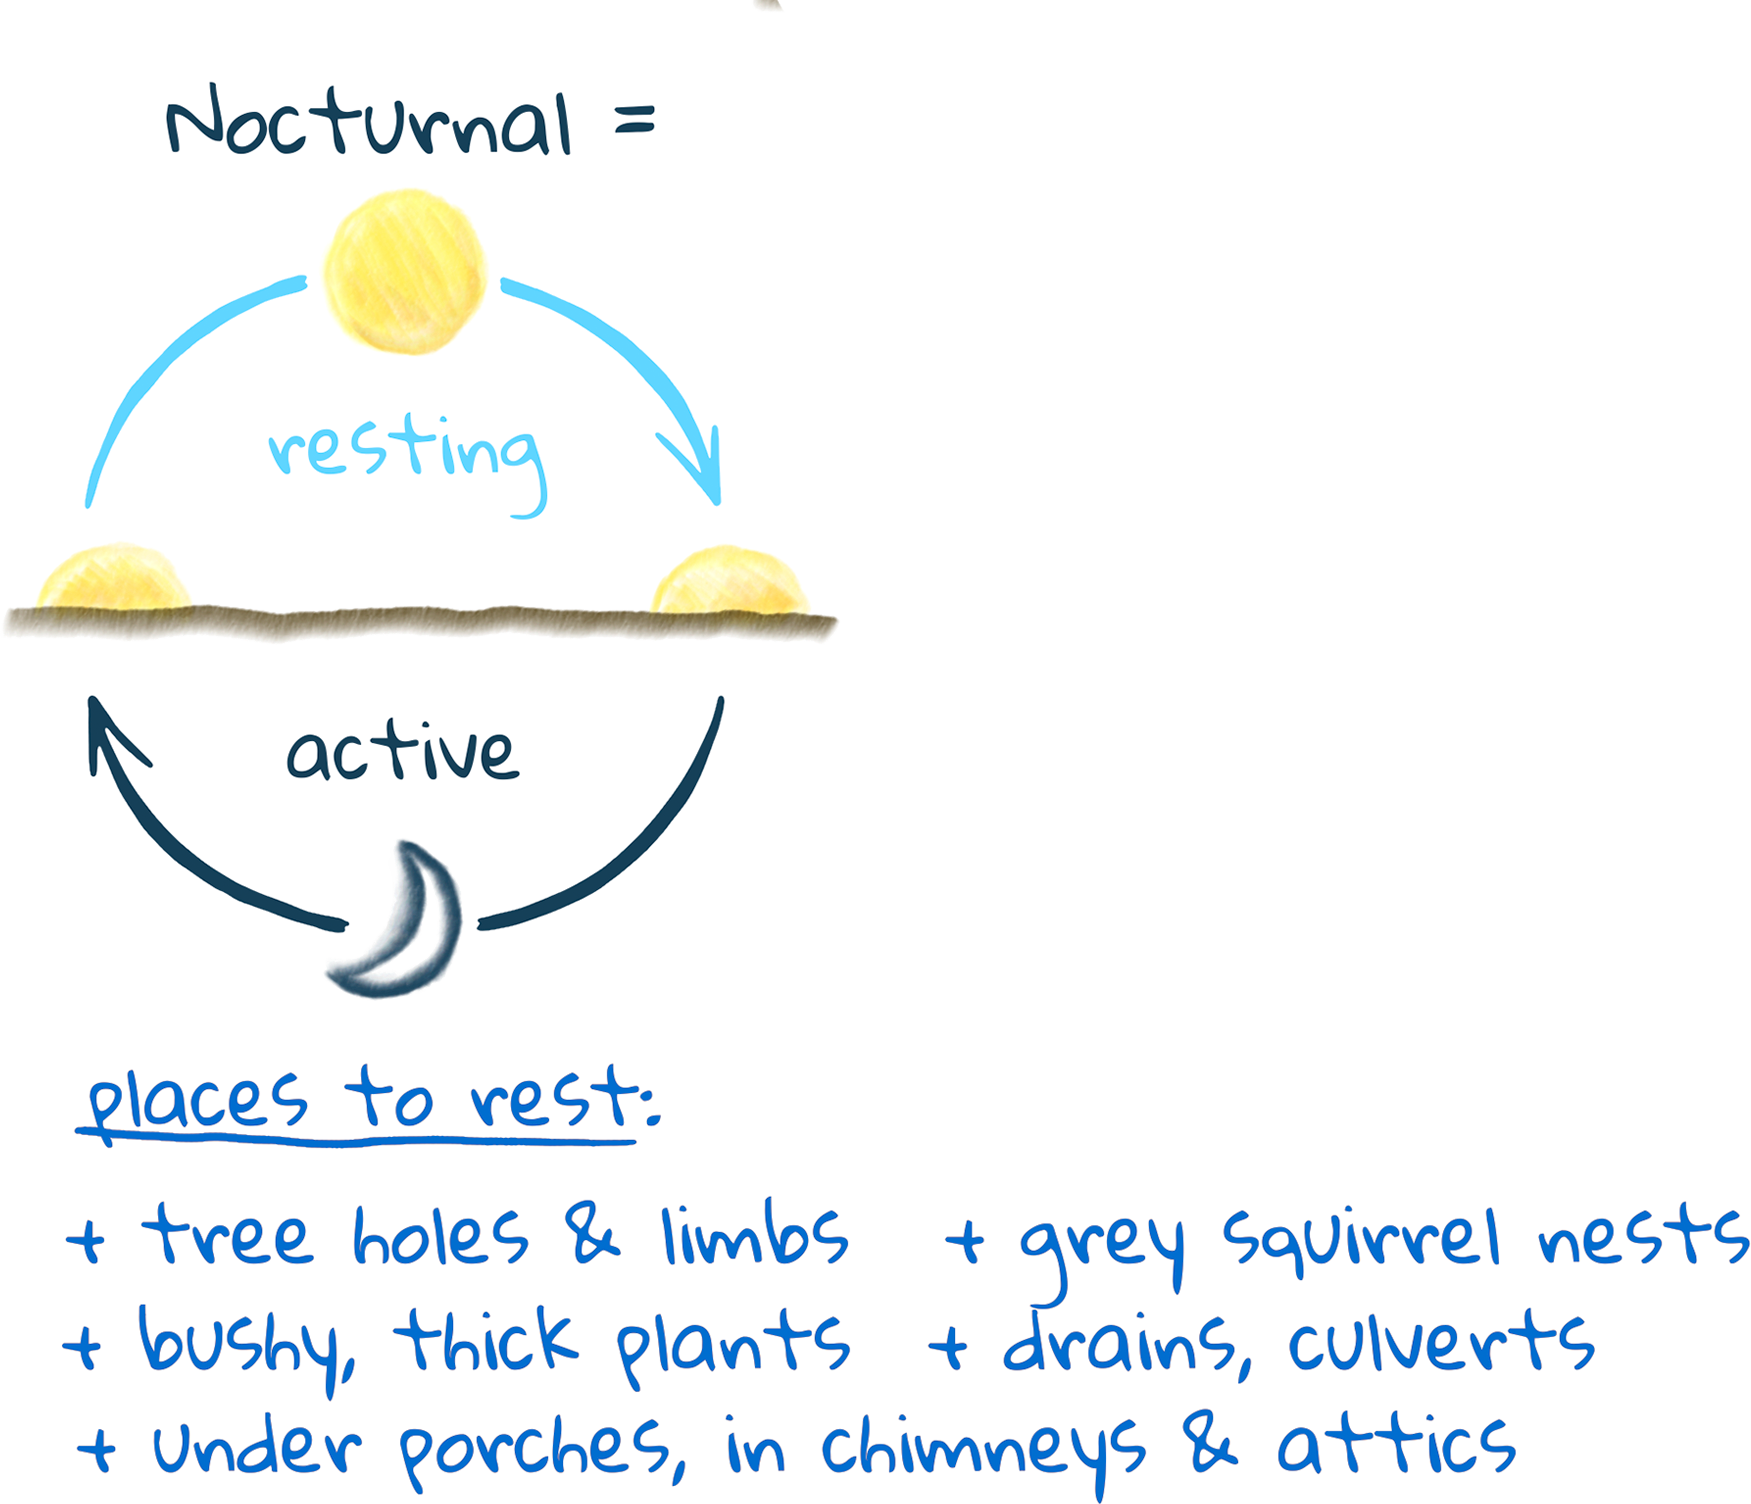 Nocturnal =
resting
active
places to rest:
+ tree holes & limbs
+ grey squirrel nests
+ bushy, thick plants
+ drains, culverts
+ under porches, in chimneys & attics